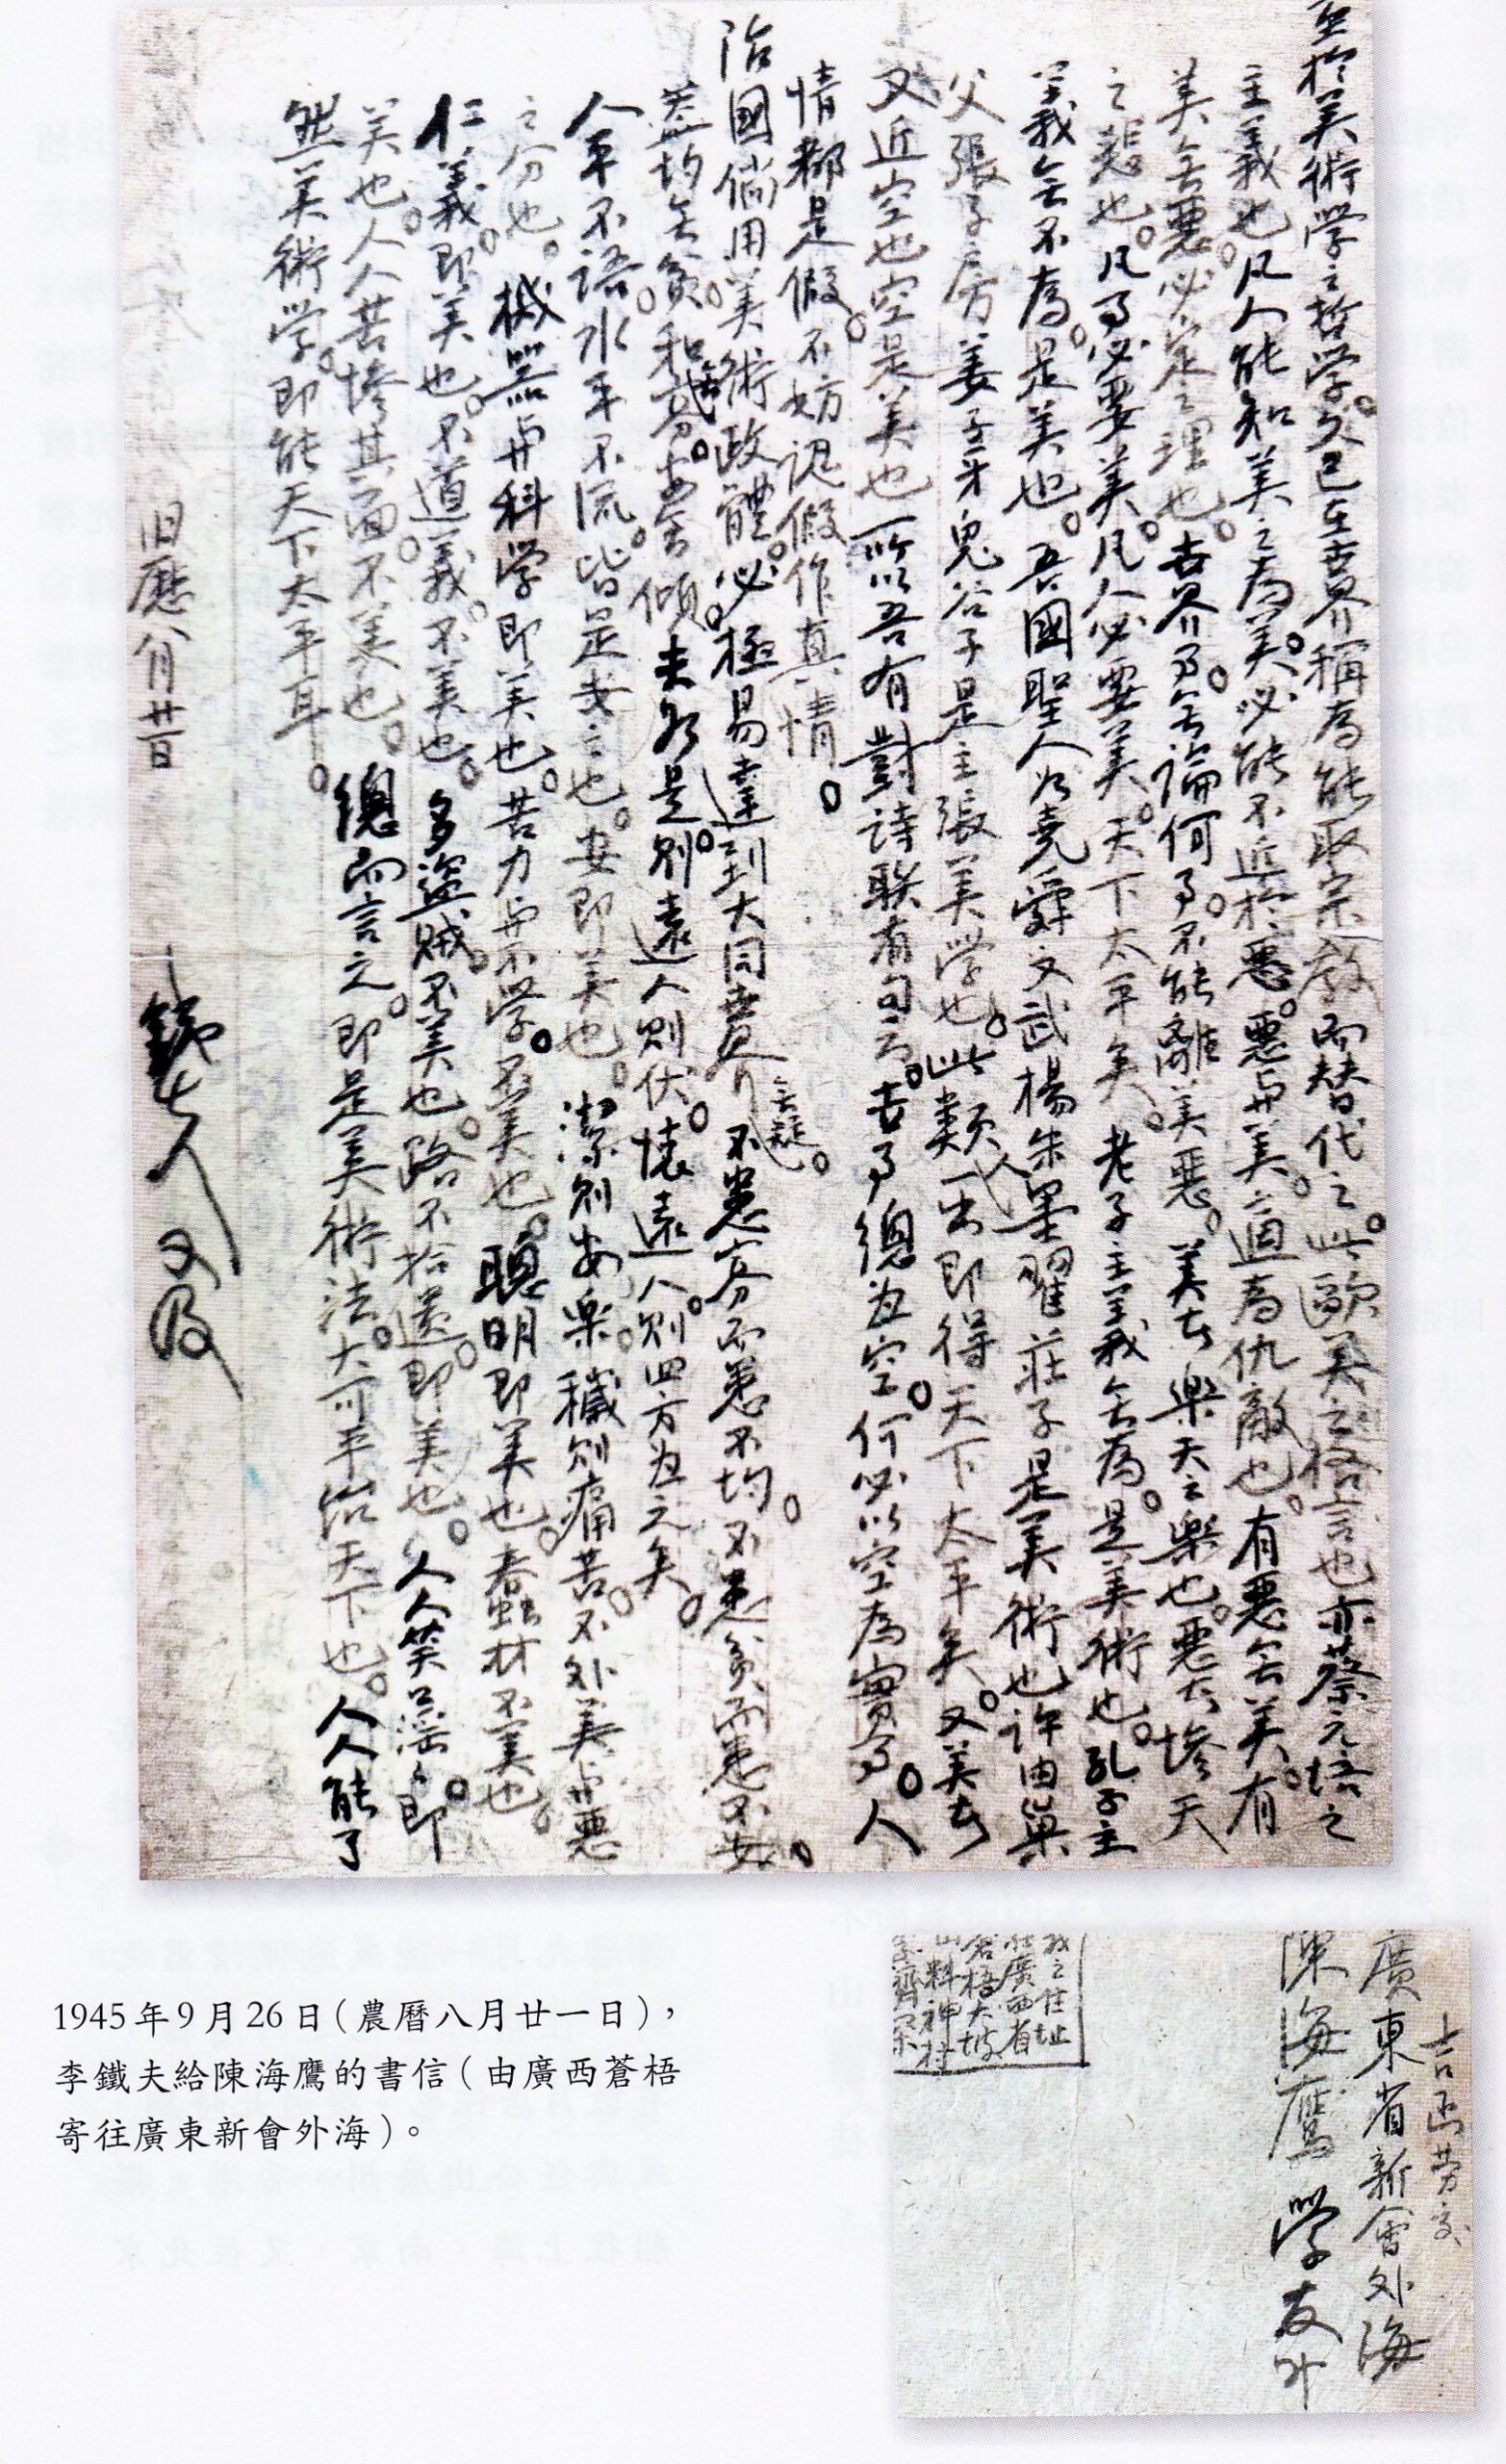 至於美術學之哲學。久已在世界稱為能取宗教而替代之。此歐美之格言也亦蔡元培之
主義也。凡人能知美之為美。必能不近於惡。惡与美。適為仇敵也。有惡無美。有
美無惡。必定之理也。世界事。無論何事。不能離美惡。美者樂天之樂也。惡者慘天
之悲也。凡事必要美。凡人必要美。天下太平矣。老子主義無為。是美術也。孔子主
義無不為。是美也。吾國聖人為堯舜文武楊朱墨翟莊子是美術也許由巢
父張子房姜子牙鬼谷子是主張美學也。此類人一出即得天下太平矣。又美者
又近空也空是美也所以吾有對詩聯有句云。世事總為空。何必以空為實事。人
情都是假。不妨認假作真情。
治國倘用美術政體。必極易達到大同世界無疑。不患寡而患不均。不患貧而患不安。
蓋均無貧。和無寡。安無傾。夫如是。則遠人則伏。懷遠人。則四方為之矣。
人平不語。水平不流。皆是安之也。安即美也。潔則安樂。穢則痛苦。不外美与惡
之分也。機器与科学即美也。苦力与不学。不美也。聰明即美也。蠢材不美也。
仁義。即美也。不道義。不美也。多盜賊。不美也。路不拾遺。即美也。人人笑口滛滛。即
美也。人人苦慘其面。不美也。總而言之。即是美術法。大可平治天下也。人人能了
然美術学。即能天下太平耳。
旧曆八月廿一日
鉄夫 又及
吉函勞交
廣東省新會外海
陳海鷹 学友
我之住址
在廣西省
蒼梧大坡
山料神村
1945年9月26日（農曆八月廿一日），
李鐵夫給陳海鷹的書信（由廣西蒼梧
寄往廣東新會外海）。